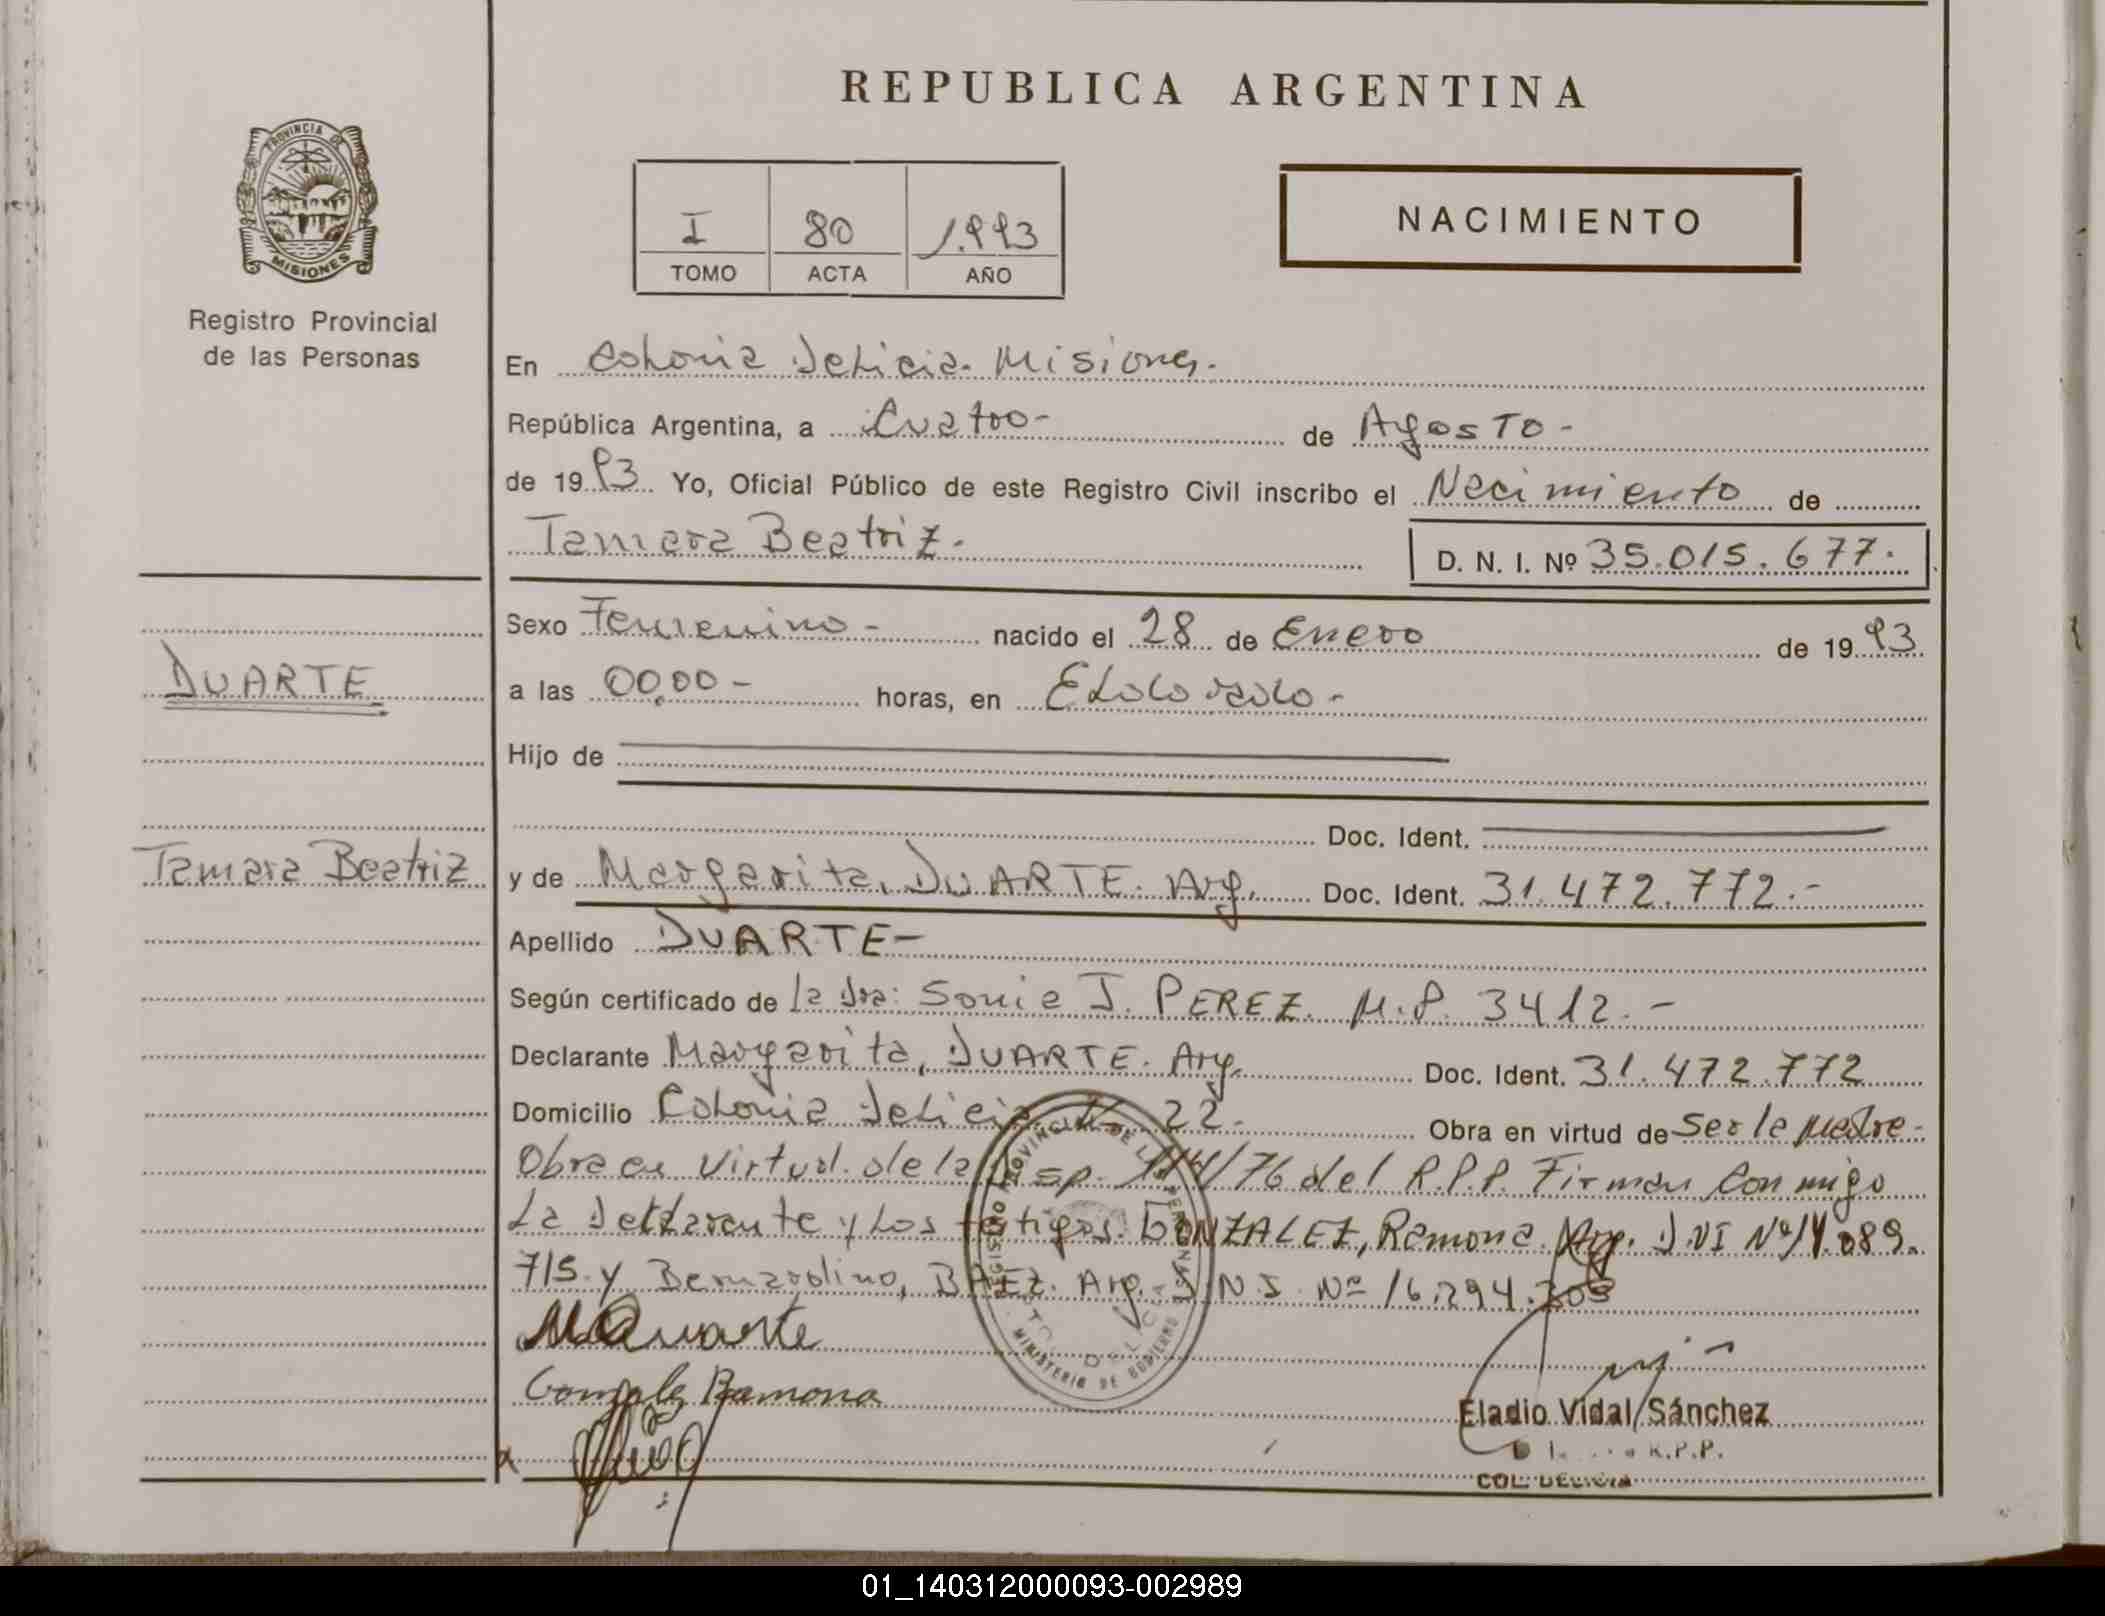 REPUBLICA ARGENTINA
PROVINCIA DE
MISIONES
Registro Provincial
de las Personas
I 80 1.993
TOMO ACTA AÑO
NACIMIENTO
En Colonia Delicia. Misiones.
República Argentina, a Cuatro- de Agosto-
de 1993 Yo, Oficial Público de este Registro Civil inscribo el Nacimiento de
Tamara Beatriz.
D. N. I. Nº 35.015.677.
Sexo Femenino- nacido el 28 de Enero de 1993
DUARTE
a las 00,00- horas, en
Hijo de
Doc. Ident.
Tamara Beatriz
y de Margarita, DUARTE. Arg. Doc. Ident. 31.472.772.-
Apellido DUARTE-
Según certificado de la Dra: Sonia J. PEREZ. M.P. 3412.-
Declarante Margarita, DUARTE. Arg. Doc. Ident. 31.472.772
Domicilio Colonia Delicia 22.- Obra en virtud de Ser la Madre-
Obra en Virtud de la Disp. /76 del R.P.P. Firman Conmigo
La Declarante y Los testigos. GONZALEZ, Ramona. Arg. D.NI Nº 14.089.
715. y Bernardino, BAEZ. Arg. D.N.I. Nº 16.294.
REGISTRO PROVINCIAL DE LAS PERSONAS
DELICIA
MINISTERIO DE GOBIERNO
MDuarte
Gonzalez Ramona
Eladio Vidal Sánchez
R.P.P.
COL. DELICIA
01_140312000093-002989